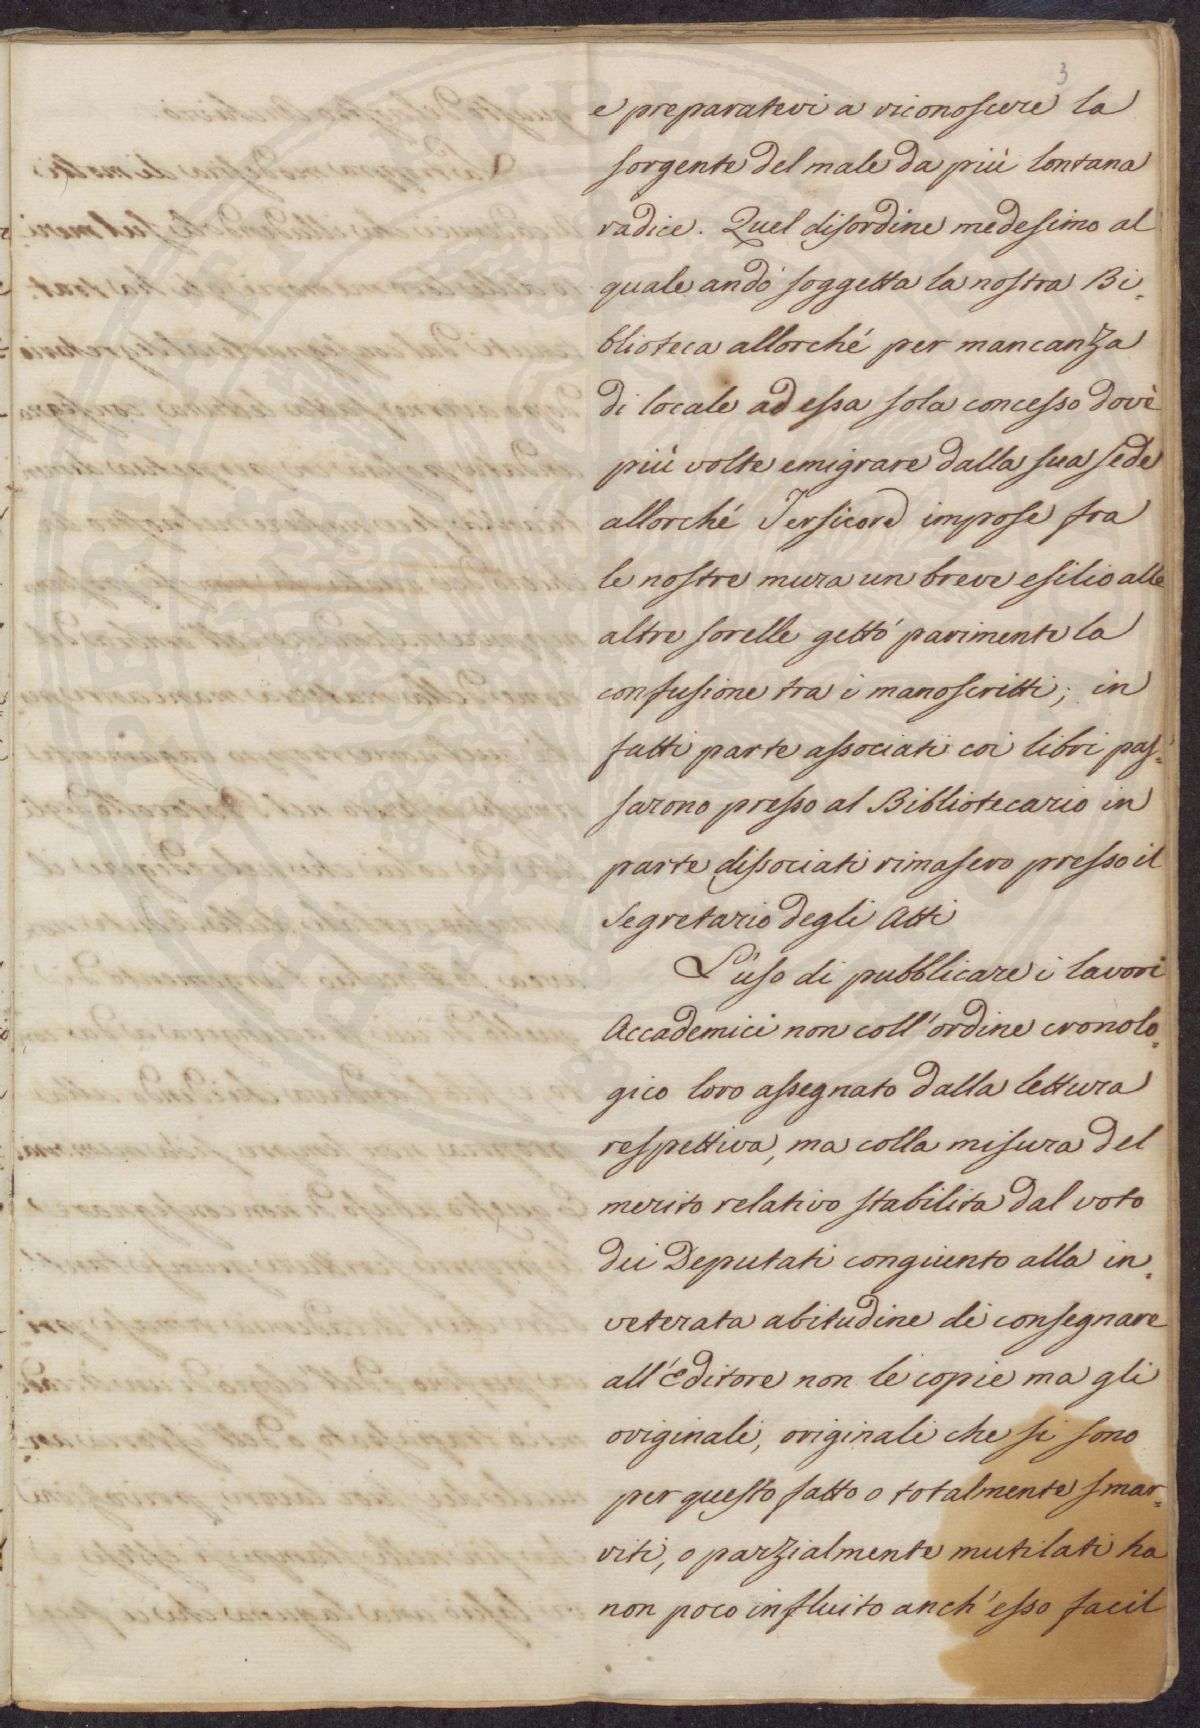 3
e preparatevi a riconoscere la
sorgente del male da più lontana
radice. Quel disordine medesimo al
quale andò soggetta la nostra Bi-
blioteca allorché per mancanza
di locale ad essa sola concesso dovè
più volte emigrare dalla sua sede
allorché Tersicore impose fra
le nostre mura un breve esilio alle
altre sorelle gettò parimente la
confusione tra i manoscritti; in
fatti parte associati coi libri pas-
sarono presso al Bibliotecario in
parte dissociati rimasero presso il
Segretario degli Atti
L'uso di pubblicare i lavori
Accademici non coll'ordine cronolo-
gico loro assegnato dalla lettura
respettiva, ma colla misura del
merito relativo stabilita dal voto
dei Deputati congiunto alla in-
veterata abitudine di consegnare
all'Editore non le copie ma gli
originali, originali che si sono
per questo fatto o totalmente smar-
riti, o parzialmente mutilati ha
non poco influito anch'esso facil